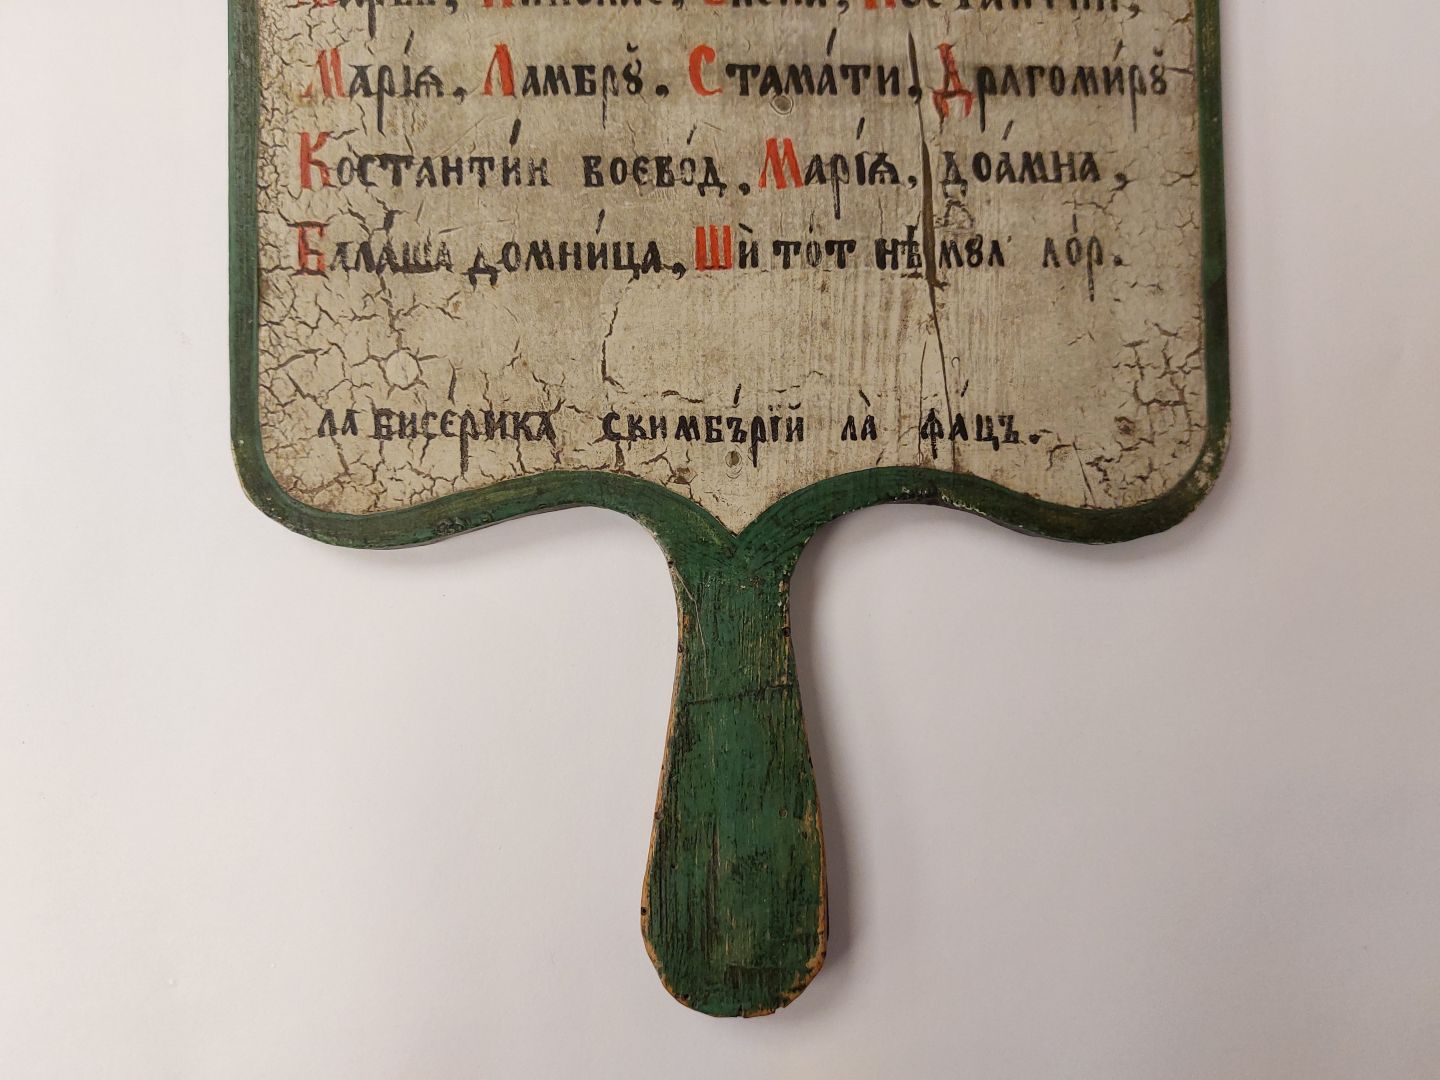 Марі́ѧ, Ламбрꙋ. Стама́ти, Драгоми́рꙋ
Костанти́н воєво́д. Марі́ѧ, доа́мна,
Бала́ша домни́ца, Шѝ то́т нѣмꙋл ло́р.
ла бисе́рика скимбъ́рїй ла̀ фа́цъ.